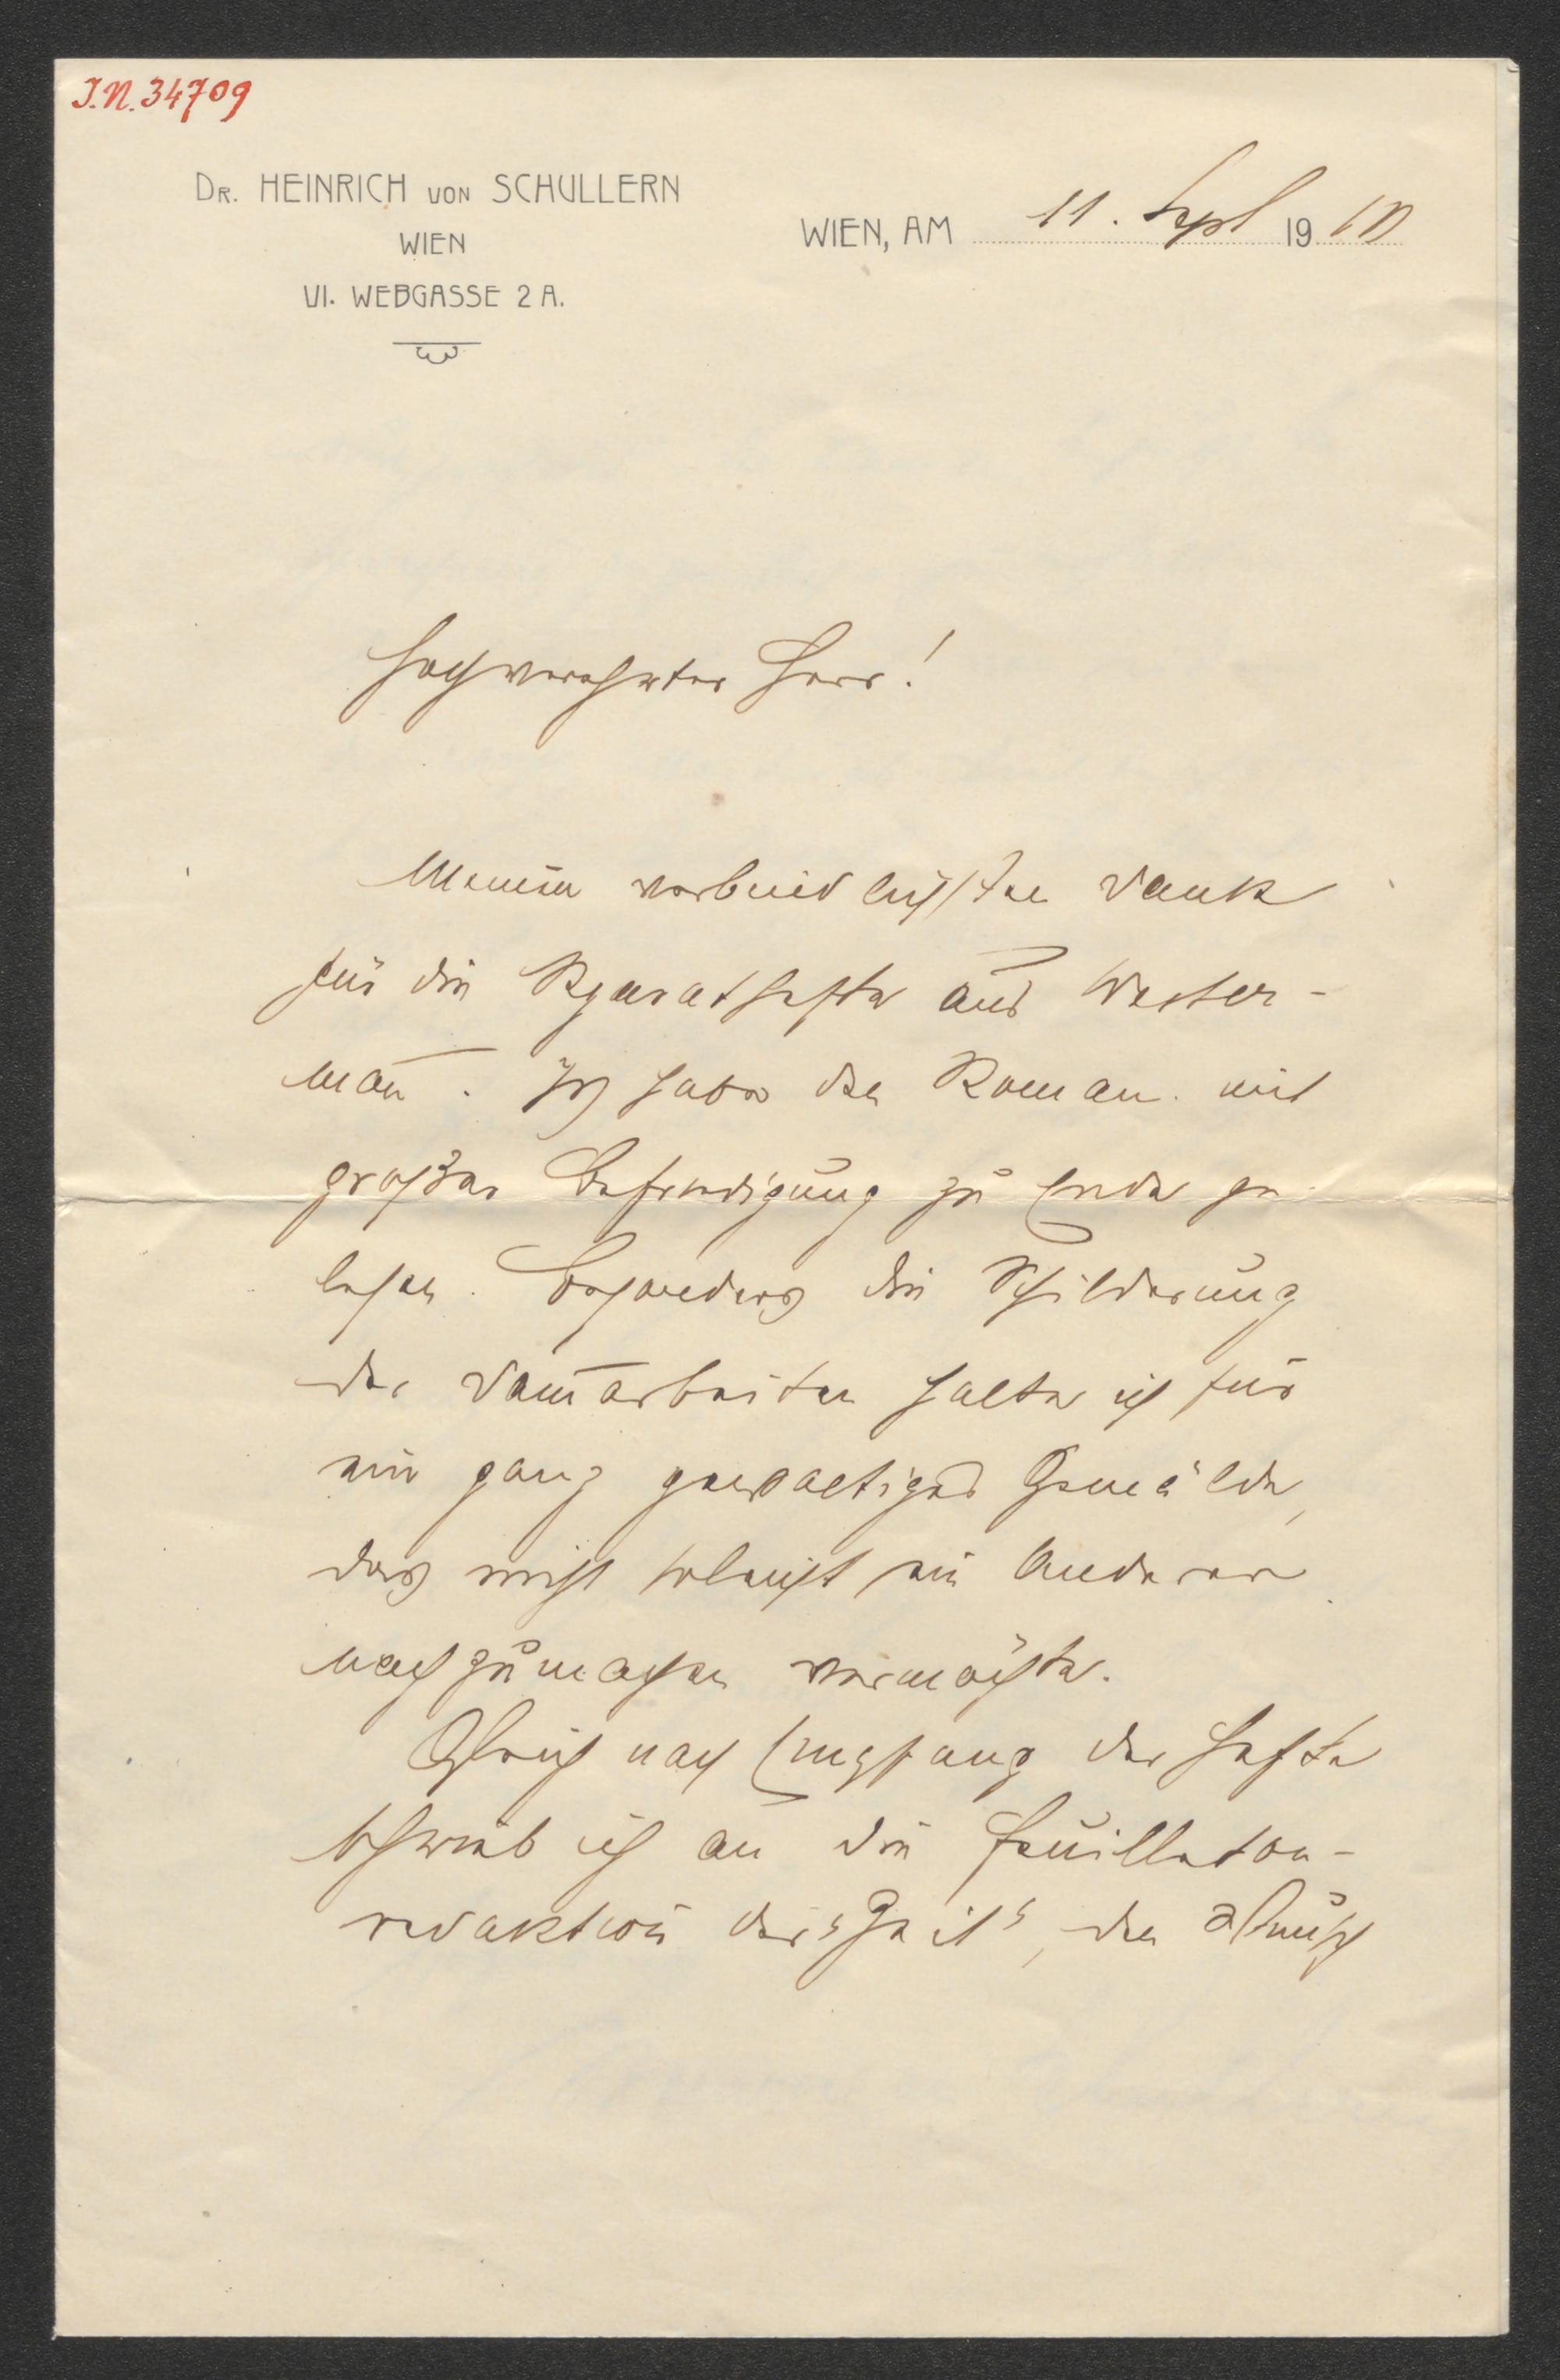 J.N. 34709
DR. HEINRICH VON SCHULLERN
WIEN
VI. WEBGASSE 2 A.
WIEN, AM 11. Sept 1910
Hochverehrter Herr!
Meinen verbindlichsten Dank
für die Separathefte aus Wester-
man̄. Ich habe den Roman mit
großer Befriedigung zu Ende ge
lesen. Besonders die Schilderung
der Dam̄arbeiten halte ich für
ein ganz gewaltiges Gemälde,
das nicht so leicht ein Anderer
nachzumachen vermöchte.
Gleich nach Empfang der Hefte
schrieb ich an die Feuilleton-
redaktion der "Zeit", den Wunsch